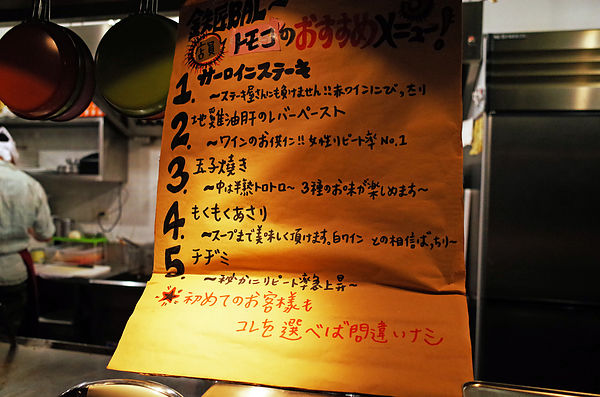 鉄匠BAL〜
店員 トモコのおすすめメニュー!
1. サーロインステーキ
〜ステーキ屋さんにも負けません!!赤ワインにぴったり
2. 地鶏油肝のレバーペースト
〜ワインのお供に!!女性リピート率No.1
3. 玉子焼き
〜中は半熟トロトロ〜 3種のお味が楽しめます〜
4. もくもくあさり
〜スープまで美味しく頂けます。白ワインとの相信ばっちり〜
5. チヂミ
〜秘かにリピート率急上昇〜
★初めてのお客様も
コレを選べば間違いナシ